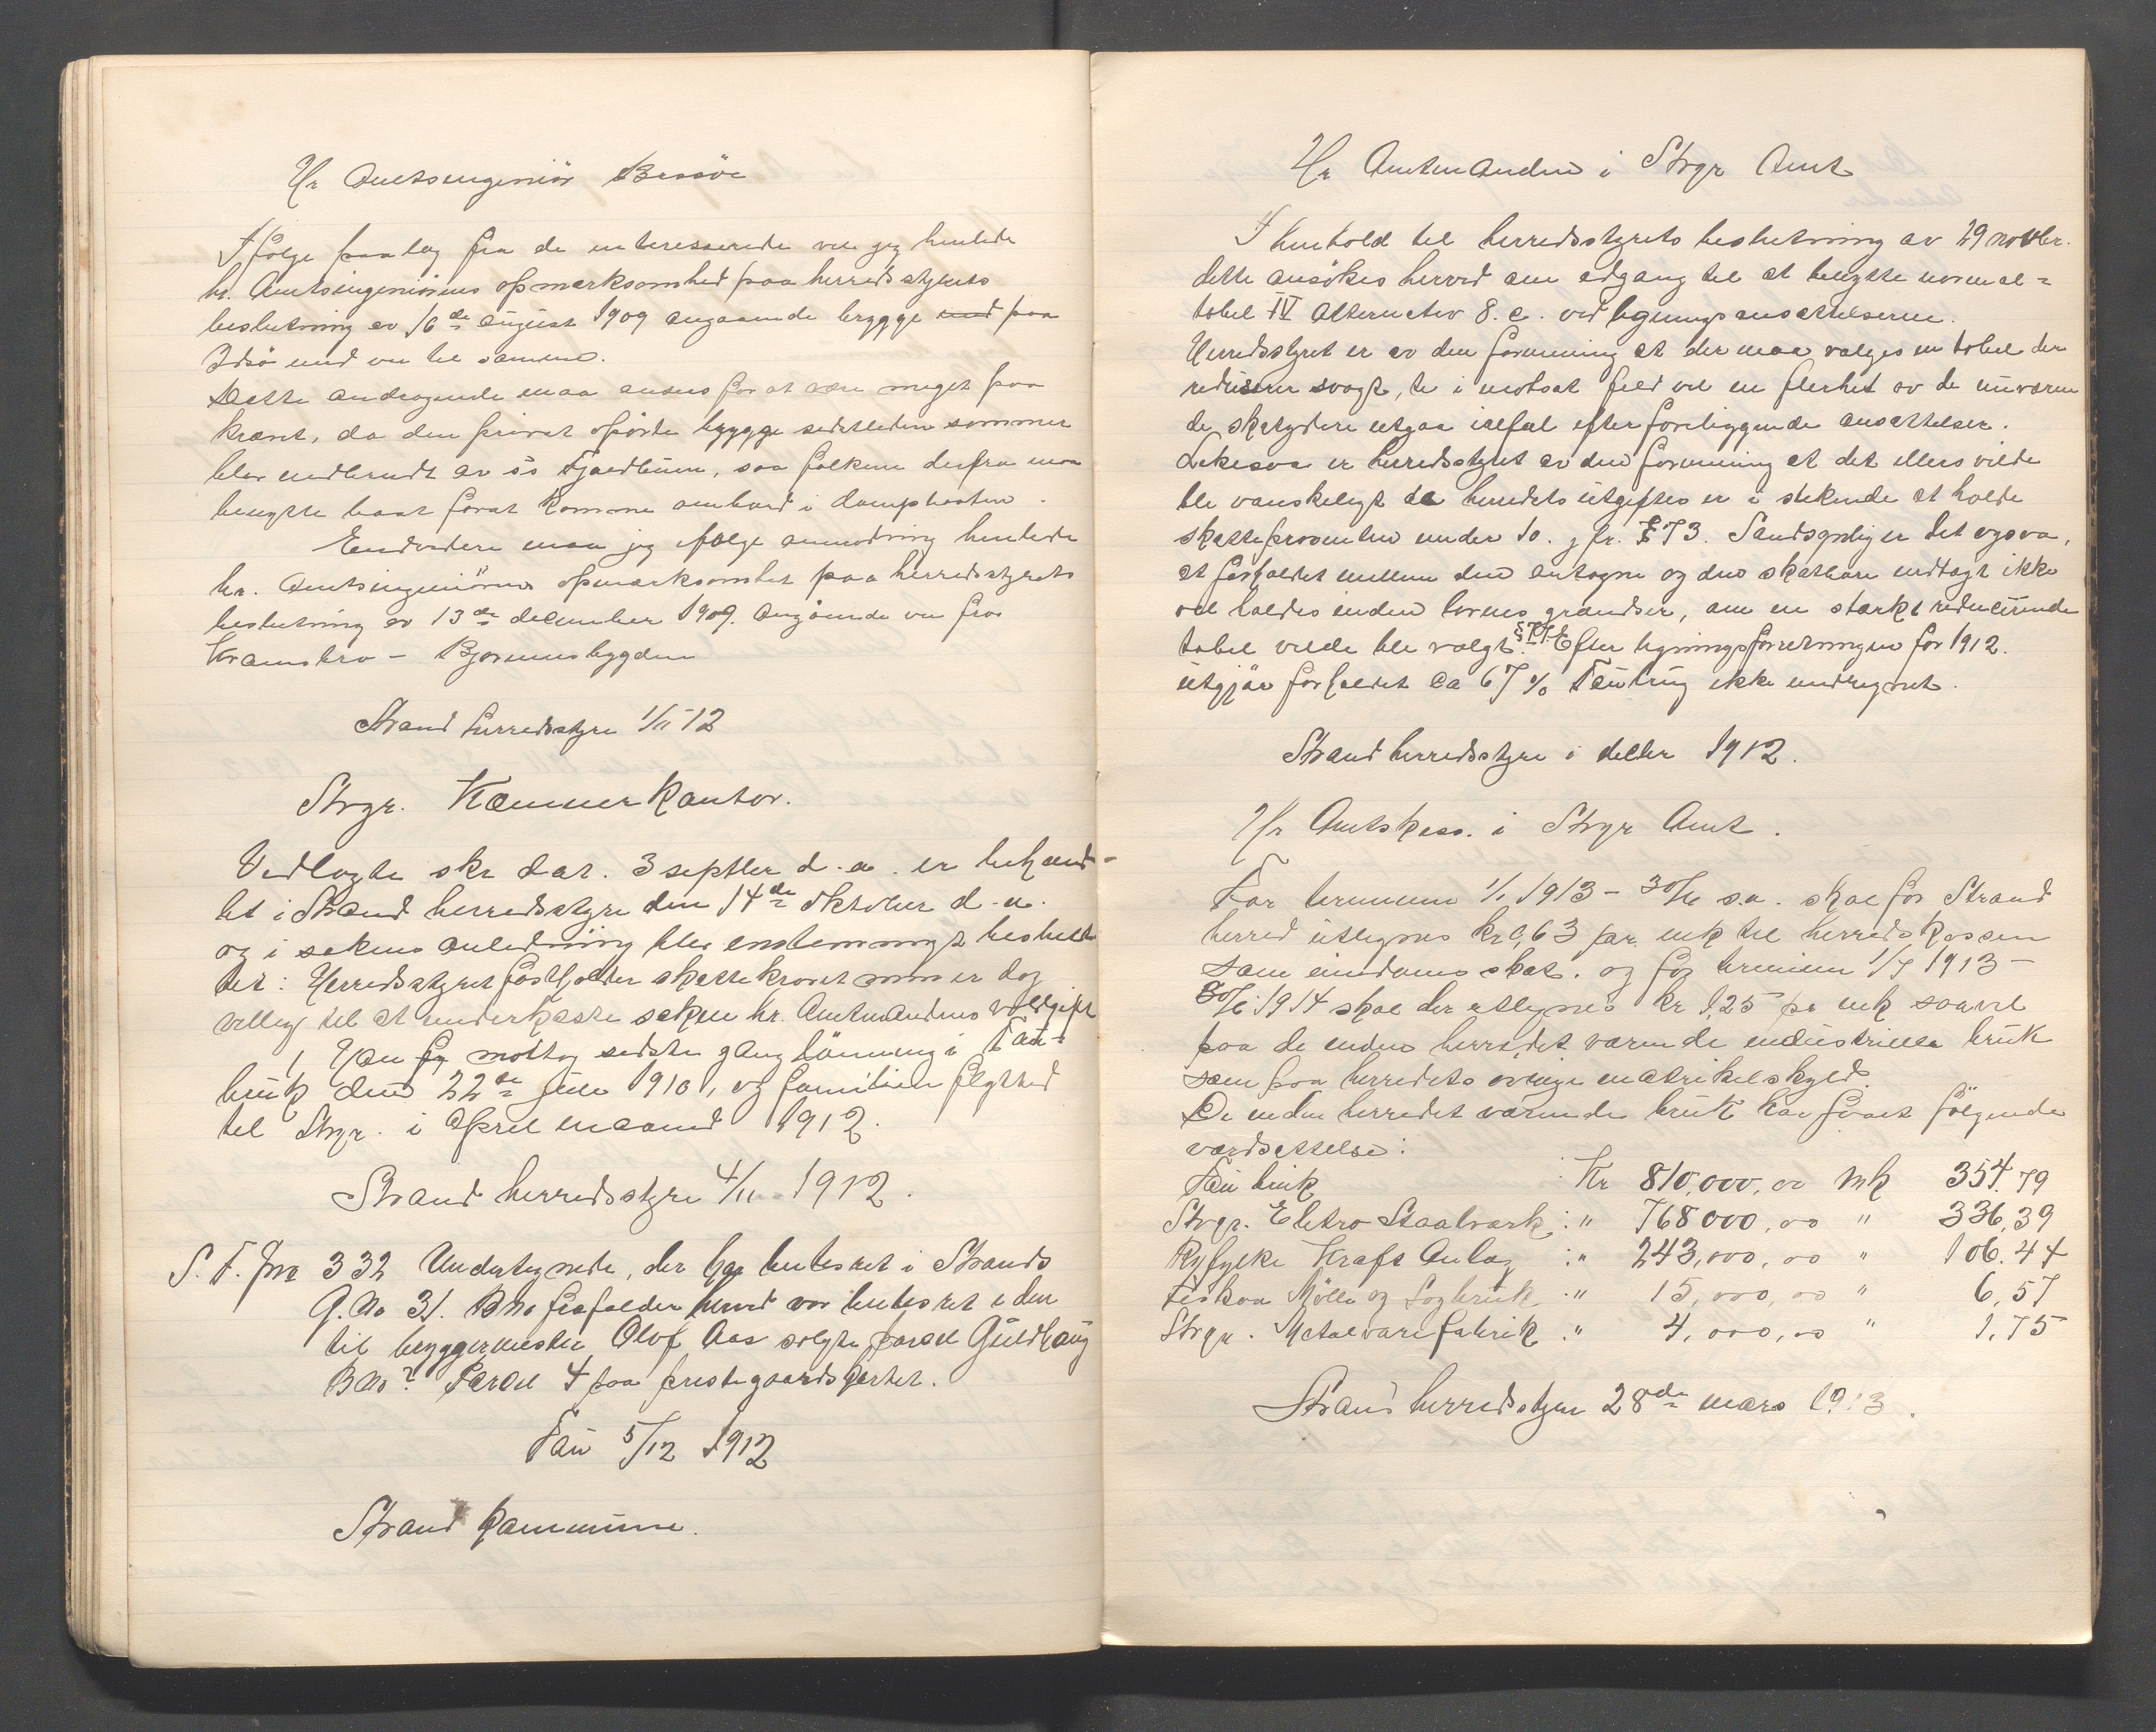 Hr Amtsingeniör Bessöe
Ifölge paalæg fra de interesserede vil jeg henlede
hr. Amtsingeniörens opmerksomhed paa herredsstyrets
beslutning av 16de august 1909 angaaende brygge med paa
Idsö med vei til samme.
Dette andragende maa ansees for at være meget paa
krævet, da den privat opförte brygge sidstleden sommer
blev nedbrudt av ss Fjordbuen, saa folkene derfra maa
benytte baat forat komme ombord i dampbaaten.
Endvidere maa jeg ifölge anmodning henlede
hr. Amtsingeniörens opmærksomhet paa herredsstyrets
beslutning av 13de december 1909. angående vei fra
Kramsbro - Bjørnusbygden
Strand herredsstyre 1/11-12
Stvgr. Kæmnerkontor.
Vedlagte skr dat. 3 septber d.a. er behand-
let i Strand herredsstyre den 14de oktober d.a.
og i sakens anledning blev enstemmigt beslut-
tet: Herredsstyret fastholder skattekravet men er dog
villig til at underkaste saken hr. Amtmandens voldgift
Han fg mottog sidste gang lönning i Tau-
bruk den 22de juli 1910, og familien flyttet
til Stvgr. i april maaned 1912.
Strand herredsstyre 4/11 1912.
S. T. fra 332 Undertegnede, der har heftet i Strands
G.No 31. BNo frafalder herved vor hefte ret i den
til bryggermester Olof Aas solgte parsel Guldhaug
BNo? Parsel 4 paa prestegaardskartet.
Tau 5/12 1912
Strand kommune.
Hr Amtmanden i Stvgr Amt
I henhold til herredsstyrets beslutning av 29 novber.
dette ansökes herved om adgang til at benytte normal=
tabel IV Alternativ 8. c. ved ligningsansættelserne.
Herredsstyret er av den formening at der maa vælges en tabel der
reduserer svagt, te i motsat fald vil en flerhet av de nuværen
de skatydere utgaa ialfal efter foreliggende ansættelser.
Likesaa er herredsstyret av den formening at det ellers vilde
bli vanskeligt da herredets utgifter er i stekende at holde
skatteprosenten under 10. jfr. § 73. Sandsynlig er det ogsaa,
at forholdet mellem den antagne og den skatbare indtægt ikke
vil holdes inden lovens grændser, om en stærkt reducerende
tabel vilde bli valgt. § 71. Efter ligningsforretningen for 1912.
utgjör forholdet ca 67 % Tau bruk ikke medregnet.
Strand herredsstyre i decbr 1912.
Hr Amtskass. i Stvgr Amt.
For terminen 1/1 1913 - 30/6 s.a. skal for Strand
herred utlignes kr 0,63 par. mk til herredskassen
som eiendomsskat. og for terminen 1/7 1913 -
30/6 1914 skal der utlignes kr 1,25 pr mk saavel
paa de inden herredet værende industrielle bruk
som paa herredets övrige matrikelskyld.
De inden herredet værende bruk har faaet fölgende
værdsættelse:
Tau bruk : Kr 810,000,00 Mk 354.79
Stvgr. Elektro Staalverk : " 768000,00 " 336,39
Ryfylke Kraft Anlæg : " 243,000,00 " 106.44
Fiskaa Mölle og Sagbruk : " 15,000,00 " 6,57
Stvgr. Metalvarefabrik : " 4,000,00 " 1,75
Strand herredsstyre 28de mars 1913.